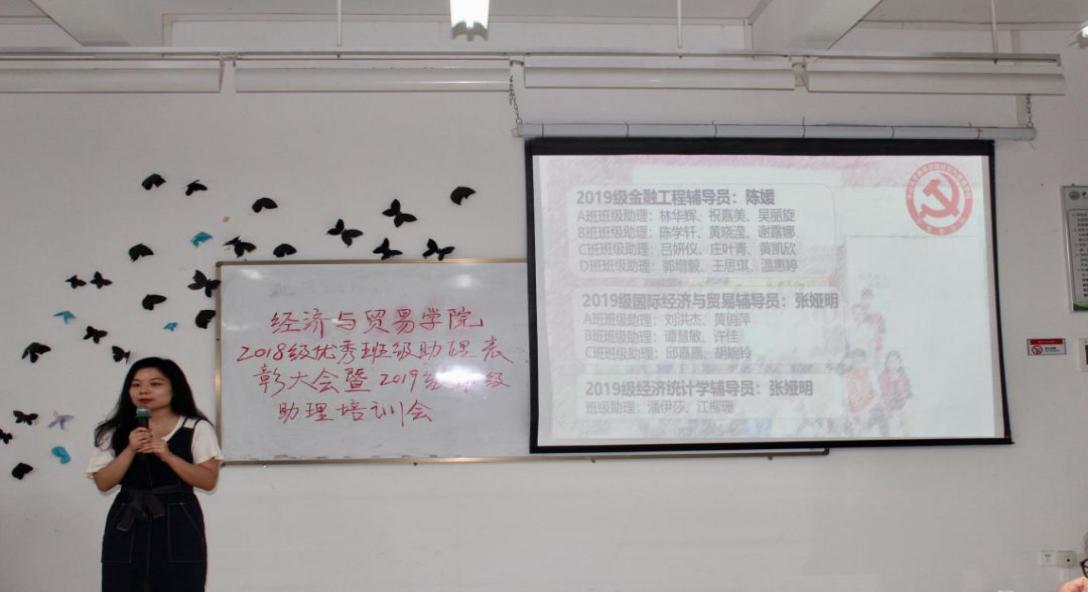 经济与贸易学院
2018级优秀班级助理表
彰大会暨2019级班级
助理培训会
2019级金融工程辅导员：陈媛
A班班级助理：林华辉、祝嘉美、吴丽旋
B班班级助理：陈学轩、黄晓滢、谢露娜
C班班级助理：吕妍仪、庄叶青、黄凯欣
D班班级助理：郭增毅、王思琪、温惠婷
2019级国际经济与贸易辅导员：张娅明
A班班级助理：刘洪杰、黄俏萍
B班班级助理：谭慧敏、许佳
C班班级助理：邱嘉嘉、胡婉铃
2019级经济统计学辅导员：张娅明
班级助理：潘伊莎、江柳珊